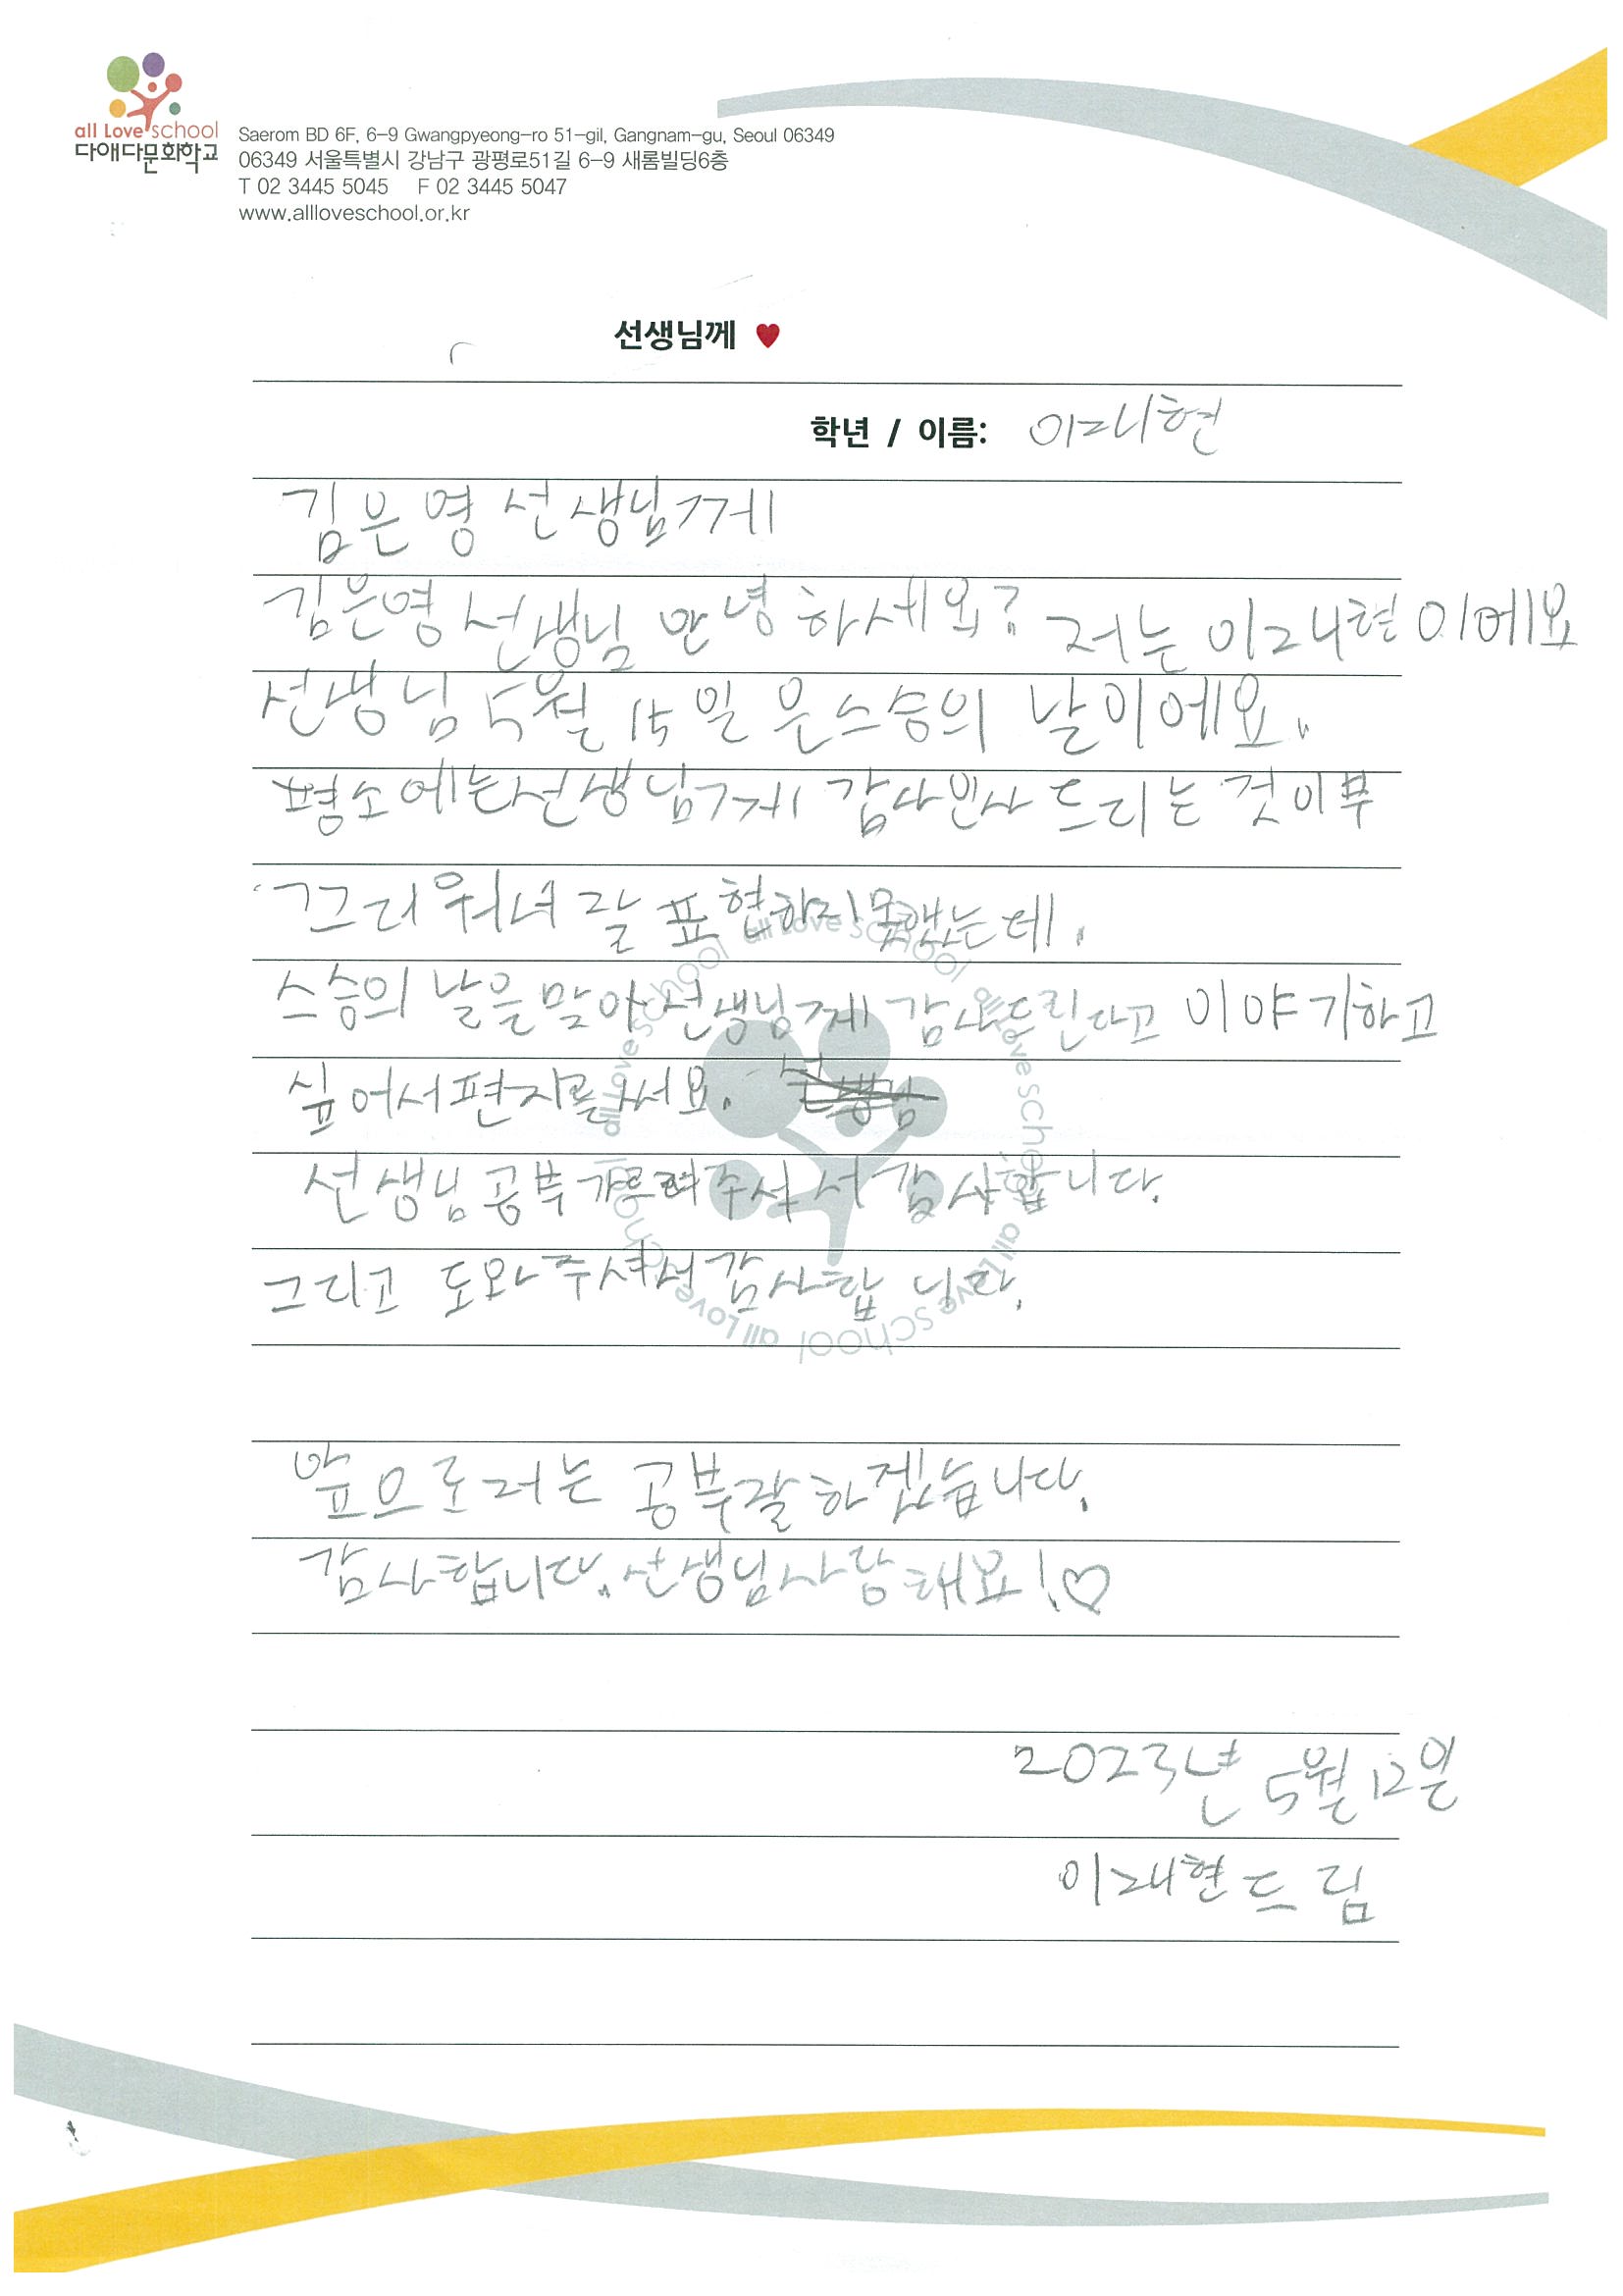 all Love school
다애다문화학교
Saerom BD 6F, 6-9 Gwangpyeong-ro 51-gil, Gangnam-gu, Seoul 06349
06349 서울특별시 강남구 광평로51길 6-9 새롬빌딩6층
T 02 3445 5045 F 02 3445 5047
www.allloveschool.or.kr
선생님께 ♥
학년 / 이름: 이재현
김은영 선생님께
김은영 선생님 안녕하세요? 저는 이재현이에요
선생님 5월 15일 은스승의 날이에요.
평소에는선생님께 감사인사 드리는 것이부
끄러워서 잘 표현하지못했는데.
스승의 날을 맞아 선생님께 감사드린다고 이야기하고
싶어서편지를써요.
선생님공부 가르쳐주셔서 감사합니다.
그리고 도와주셔서 감사합니다.
앞으로저는 공부잘하겠습니다.
감사합니다. 선생님사랑해요!♡
2023년 5월 12일
이재현드림
all Love school all Love school all Love school all Love school all Love school